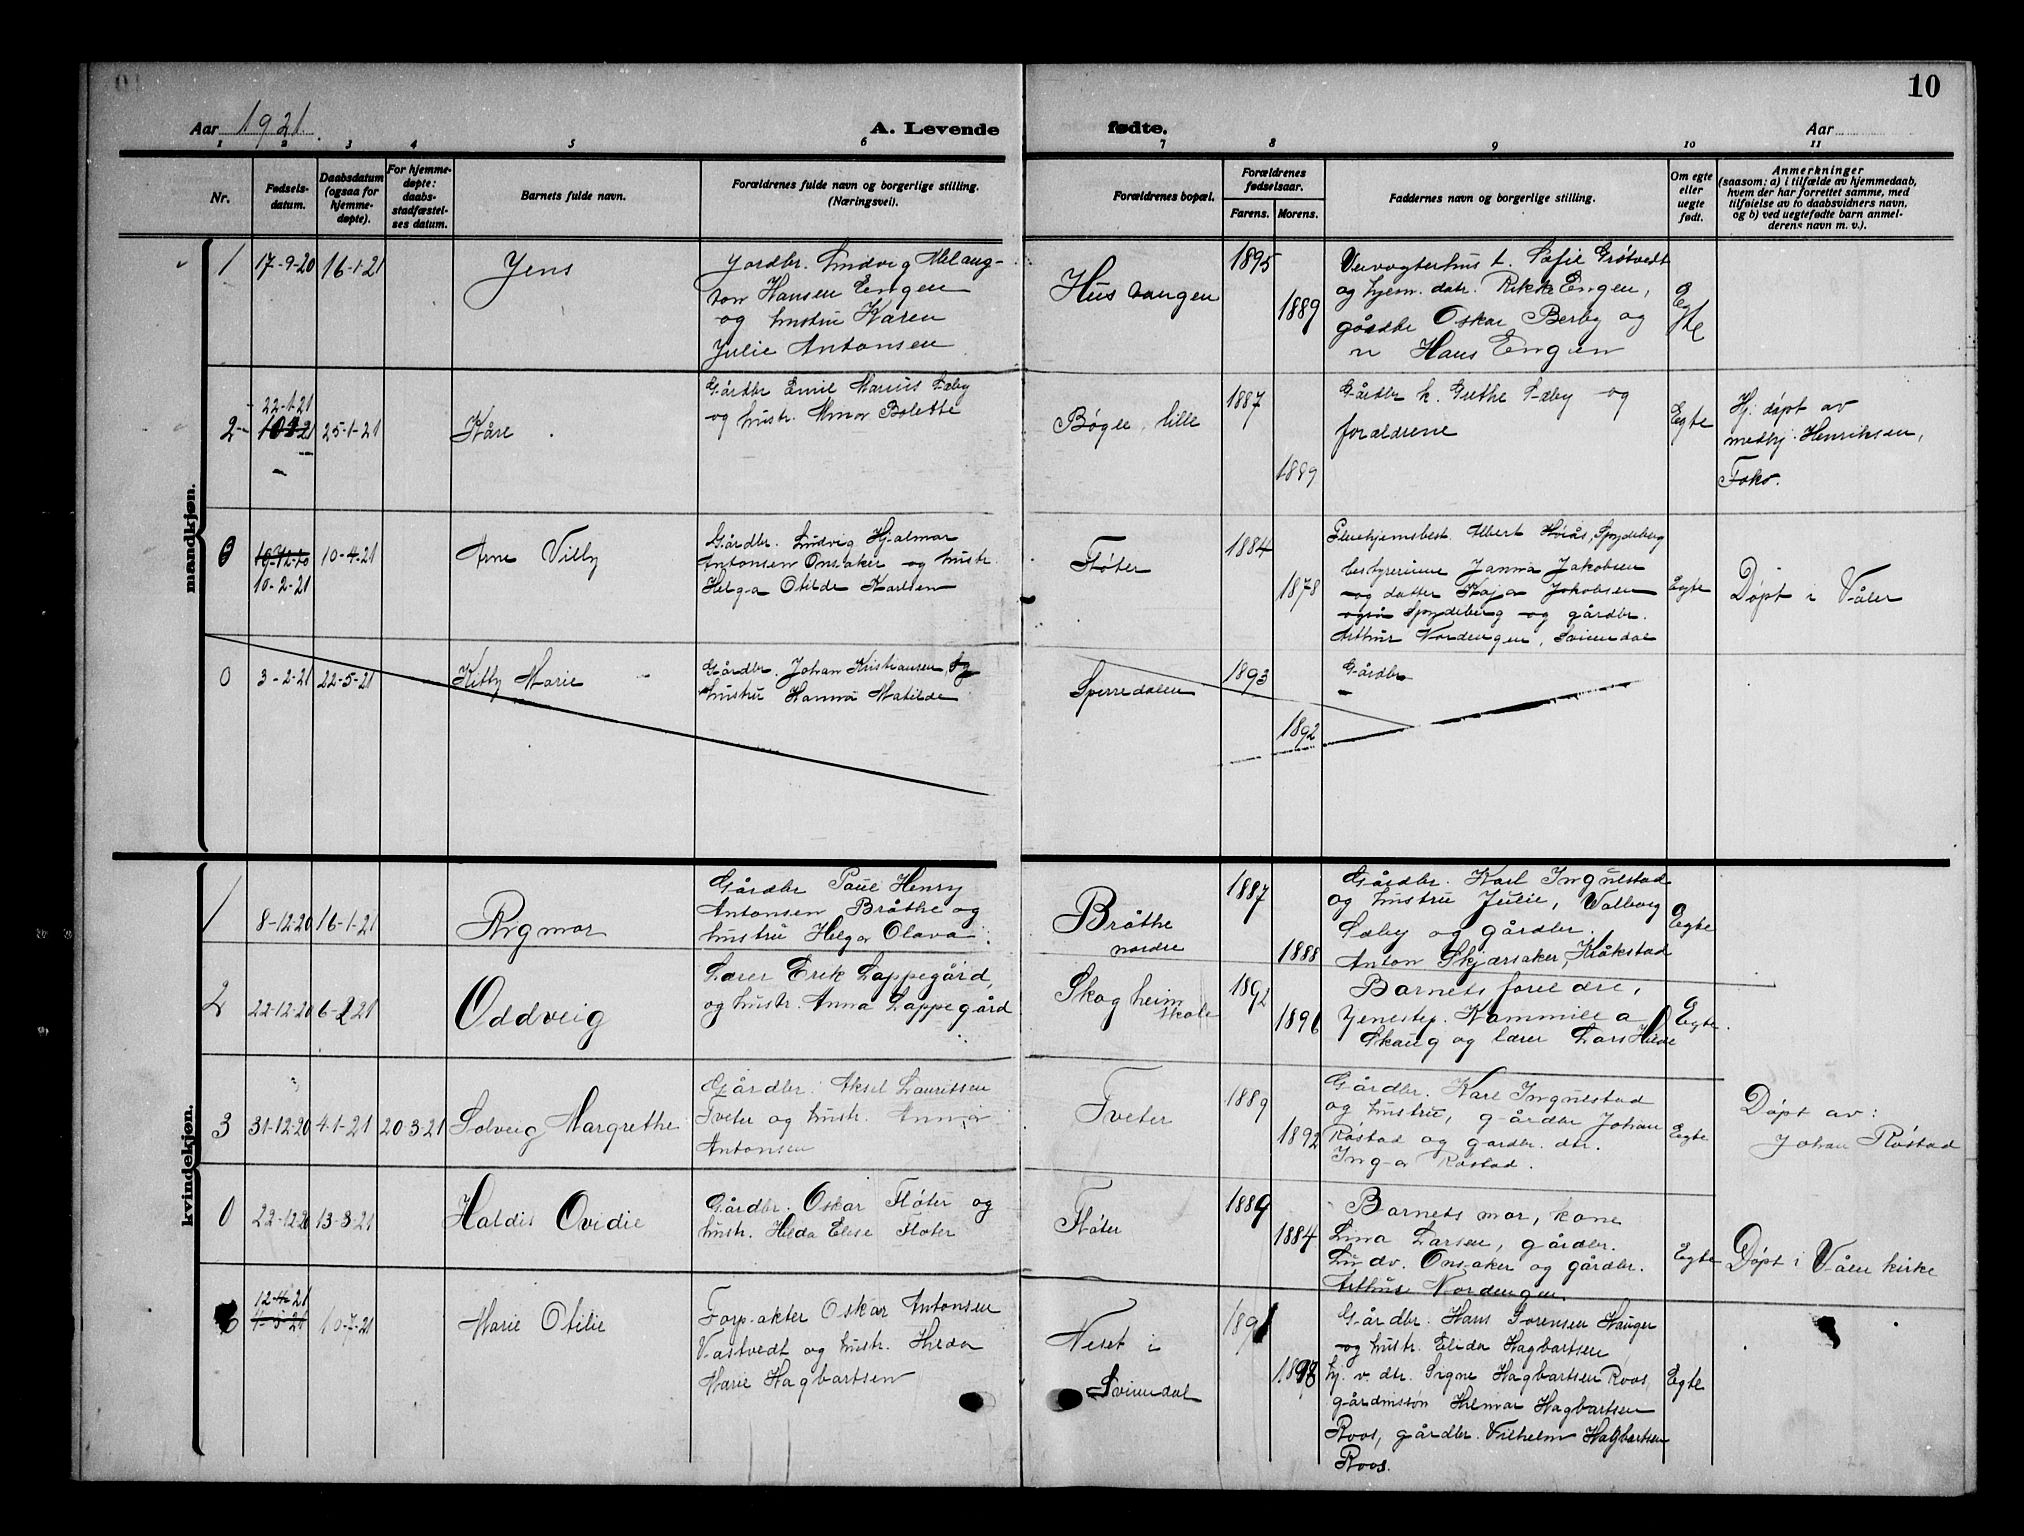 10
Aar 1921.
A. Levende
fødte.
Aar
1 2 3 4 5 6 7 8 9 10 11
Nr.
Fødsels-
datum.
Daabsdatum
(ogsaa for
hjemme-
døpte).
For hjemme-
døpte:
daabs-
stadfæstel-
ses datum.
Barnets fulde navn.
Forældrenes fulde navn og borgerlige stilling.
(Næringsvei).
Forældrenes bopæl.
Forældrenes
fødselsaar.
Farens. Morens.
Faddernes navn og borgerlige stilling.
Om egte
eller
uegte
født.
Anmerkninger
(saasom: a) i tilfælde av hjemmedaab,
hvem der har forrettet samme, med
tilføielse av to daabsvidners navn,
og b) ved uegtefødte barn anmel-
derens navn m. v.).
mandkjøn.
1
17-9-20
16-1-21
Jens
Jordbr. Ludvig Melang-
ton Hansen Engen
og hustru Karen
Julie Antonsen
Hus vangen
1895
1889
Sofie Grøtvedt
og hjem. datr. Rikke Engen,
gårdbr Oskar Berby og
" Hans Engen
Egte
2
22-1-21
25-1-21
Kåre
Gårdbr Emil Marius Sæby
og hustr. Bolette
Bøgle, lille
1887
1889
Gårdbr k. Grethe Sæby og
forældrene
Egte
Hj. døpt av
medhj. Henriksen,
Foko.
0
10-12-20
10-2-21
10-4-21
Arne Villy
Gårdbr. Ludvig Hjalmar
Antonsen Onsaker og hustr.
Helga Otilde Karlsen
Fløter
1884
1878
Pleiehjemsbest. Albert Horås, Spydeberg
bestyrerinne Janna Jakobsen
og datter Kaja Jakobsen
også Spydeberg og gårdbr.
Arthur Nordengen, Svinndal
Egte
Døpt i Våler
0
3-2-21
22-5-21
Kitty Marie
Gårdbr. Johan Kristiansen, og
hustru Hanna Matilde
Sperredalen
1893
1892
Gårdbr
kvindekjøn.
1
8-12-20
16-1-21
Ragmor
Gårdbr Paul Henry
Antonsen Bråthe og
hustru Helga Olava.
Bråthe
nordre
1887
1888
Gårdbr. Karl Ingulstad
og hustru Julie, Valborg
Sæby og gårdbr.
Anton Skjærsaker, Kråkstad
Egte
2
22-12-20
6-2 21
Oddveig
Lærer Erik Lappegård,
og hustr. Anna Lappegård
Skogheim
skole
1892
1896
Barnets foreldre,
Jenestep. Kammilla
Skaug og lærer Lars Hilde
Egte.
3
31-12-20
4-1-21
20-3-21
Solveig Margrethe
Gårdbr. Aksel Lauritsen
Tveter og hustr. Anna
Antonsen
Tveter
1889
1892
Gårdbr. Karl Ingulstad
og hustru, gårdbr Johan
Røstad og gardbr. dtr.
Inga Røstad.
Egte
Døpt av:
Johan Røstad
0
22-12-20
13-3-21
Haldis Ovidie
Gårdbr. Oskar Fløter og
hustr. Hilda Elise Fløter
Fløter
1889
1884
Barnets mor, kone
Lina Larsen, gårdbr.
Ludv. Onsaker og gårdbr.
Arthur Nordengen.
Egte
Døpt i Våler kirke
12-4-21
1-5-21
10-7-21
Marie Otilie
Forpakter Oskar Antonsen
Vastvedt og hustr. Hilda
Marie Hagbartsen
Neset i
Svinndal
1891
1898
Gårdbr. Hans Sorensen Hauger
og hustr. Elida Hagbartsen
hj. v. dtr. Signe Hagbartsen Roos,
gårdmsøn Hilmar Hagbartsen
Roos, gårdbr. Vilhelm Hagbartsen
Roos.
Egte